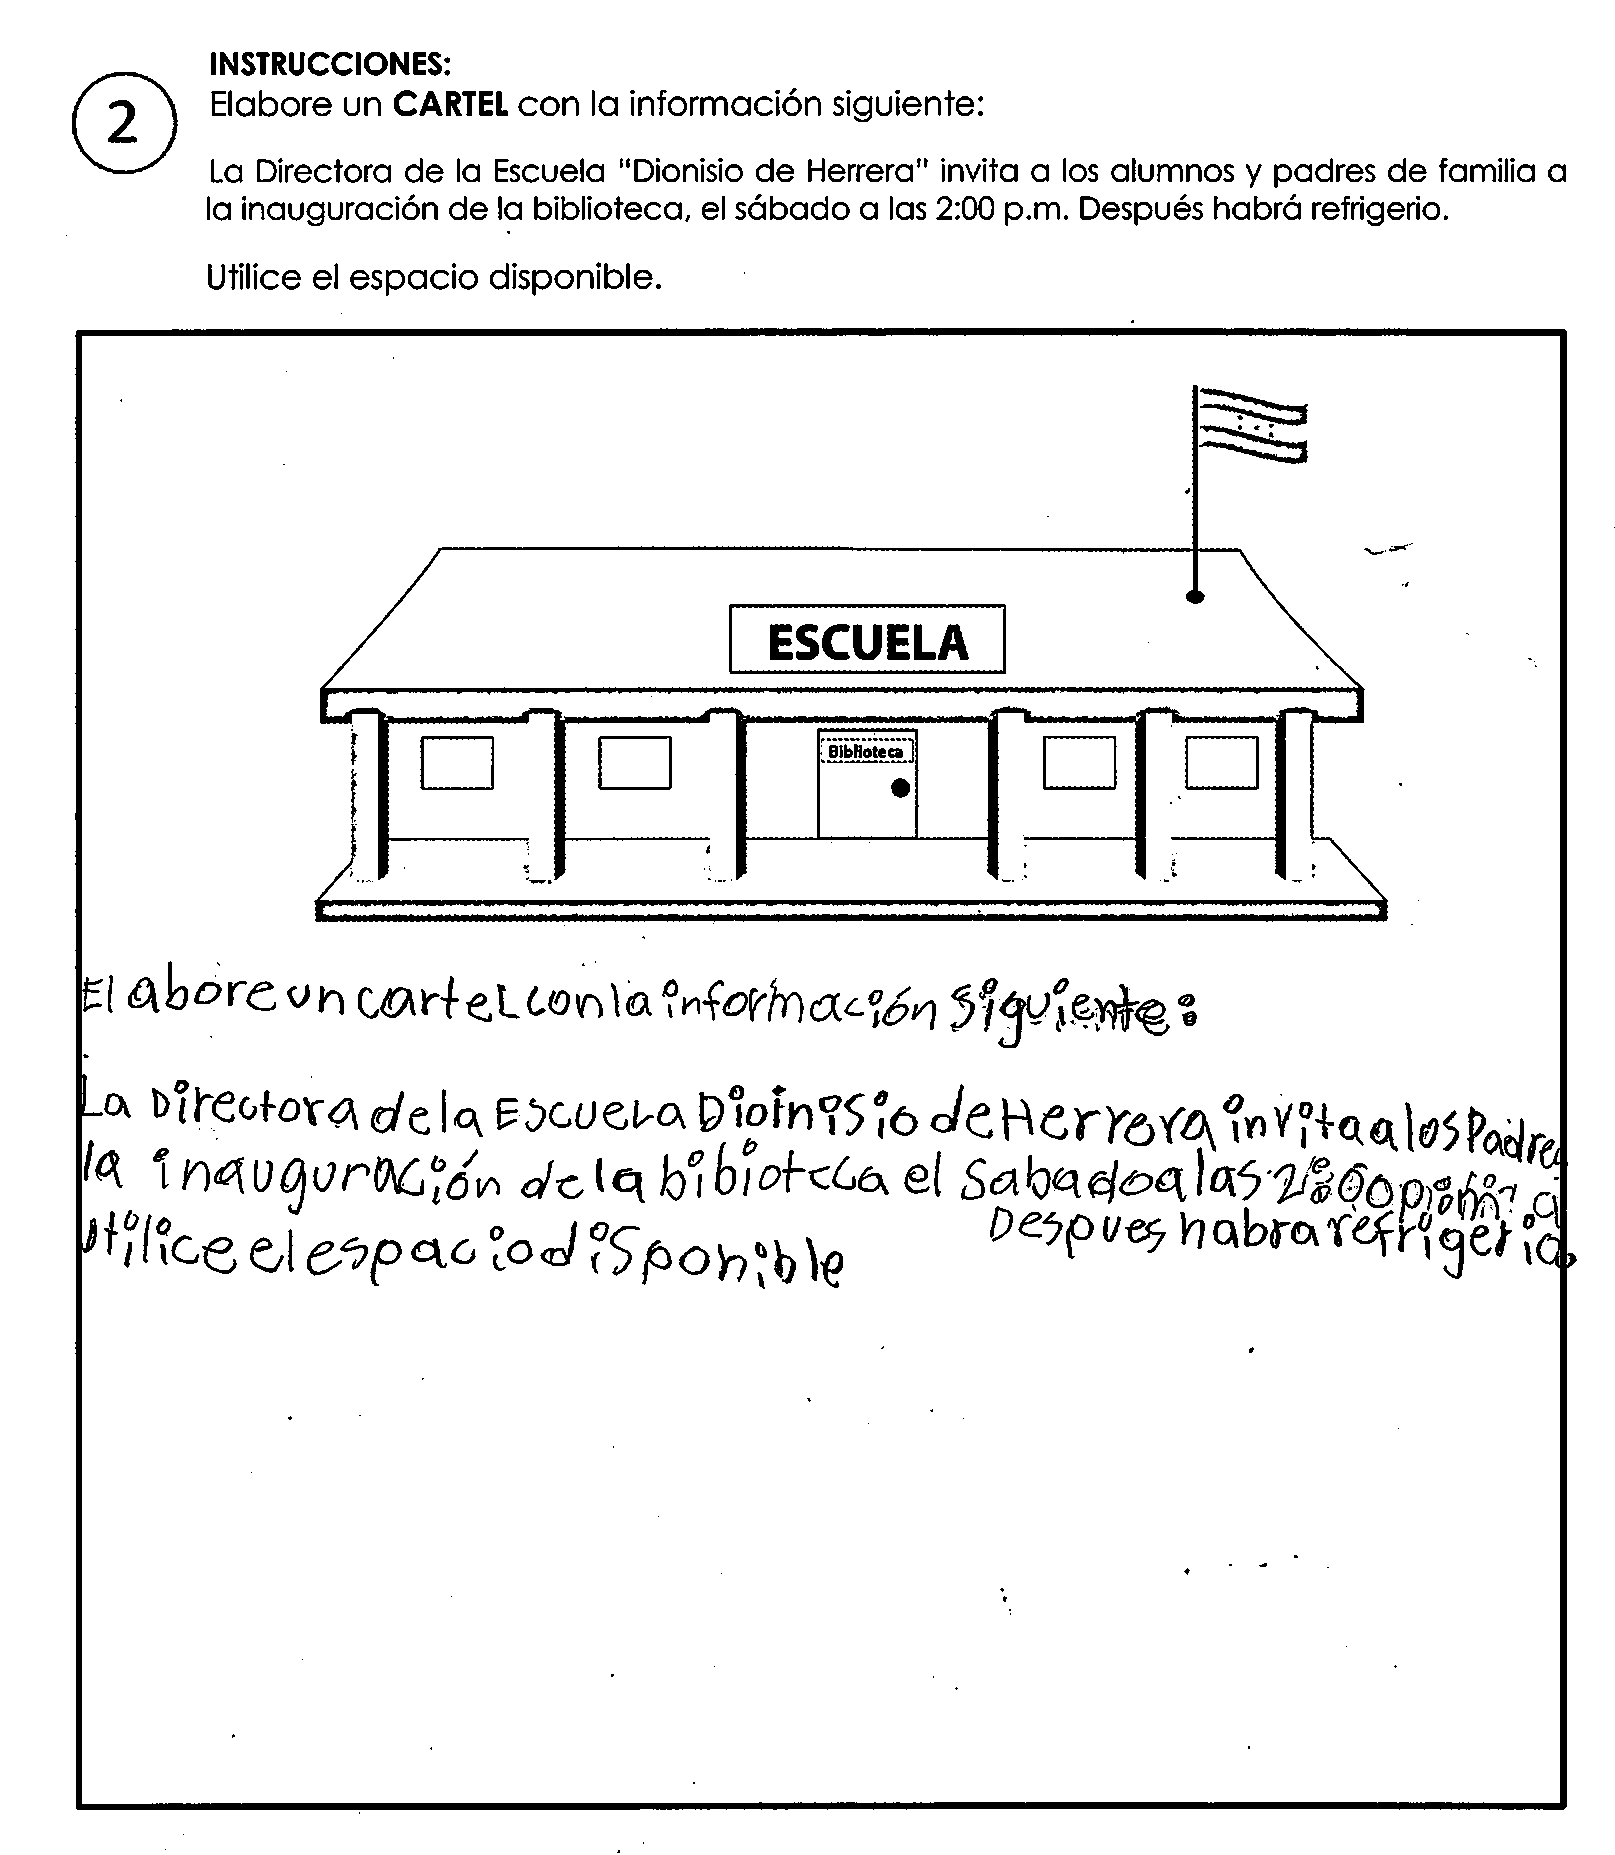 INSTRUCCIONES:
2
Elabore un CARTEL con la información siguiente:
La Directora de la Escuela "Dionisio de Herrera" invita a los alumnos y padres de familia a
la inauguración de la biblioteca, el sábado a las 2:00 p.m. Después habrá refrigerio.
Utilice el espacio disponible.
ESCUELA
Biblioteca
Elabore un cartel con la información siguiente:
La Directora de la EscueLa Dioinisio de Herrera invita a los Padre
la inauguración de la bibioteca el sabado a las 2:00 p.m. a
Despues habra refrigerio
utilice el espacio disponible